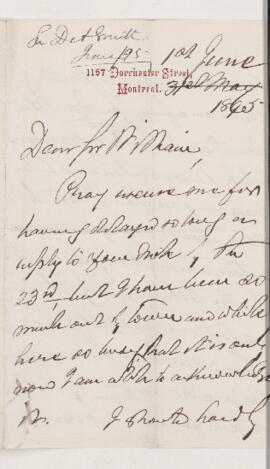 Sir D A Smith
June /95
1157 Dorchester Street,
Montreal.
1st June
31st May
1895
Dear Sir William,
Pray excuse me for
having delayed so long a
reply to your note of the
23rd, but I have been so
much out of town and while
here so busy that it is only
now I am able to acknowledge
it. I should hardly